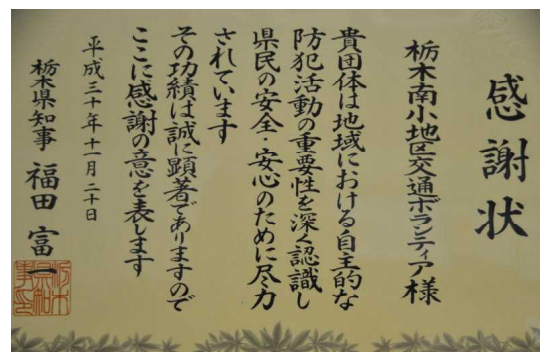 感謝状
栃木南小地区交通ボランティア様
貴団体は地域における自主的な
防犯活動の重要性を深く認識し
県民の安全・安心のために尽力
されています
その功績は誠に顕著でありますので
ここに感謝の意を表します
平成三十年十一月二十日
栃木県知事 福田富一